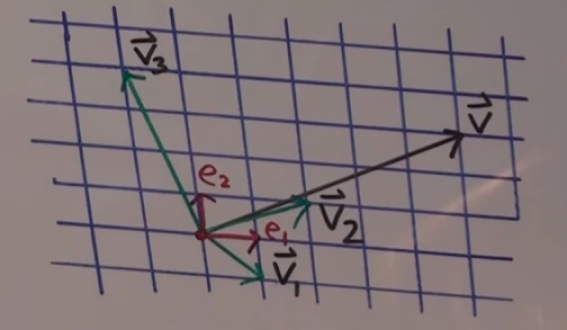 V⃗₃
V⃗
e₂
V⃗₂
e₁
V⃗₁